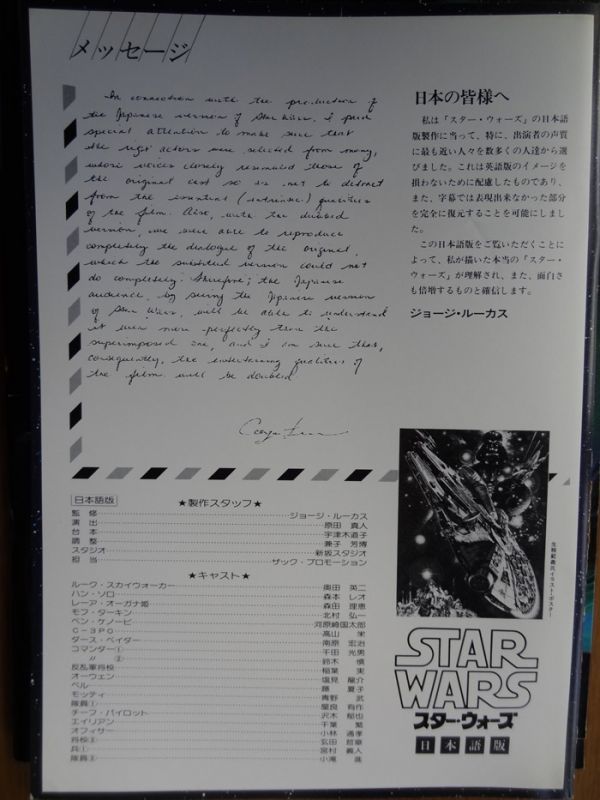 メッセージ
In connection with the production of
the Japanese version of Star Wars, I paid
special attention to make sure that
the right actors were selected from many,
whose voices closely resembled those of
the original cast so as not to detract
from the essential (intrinsic) qualities
of the film. Also, with the dubbed
version, we were able to reproduce
completely the dialogue of the original,
which the subtitled version could not
do completely. Therefore, the Japanese
audience, by seeing the Japanese version
of Star Wars, will be able to understand
it even more perfectly than the
superimposed one, and I am sure that,
consequently, the entertaining qualities of
the film will be doubled
日本の皆様へ
私は「スター・ウォーズ」の日本語
版製作に当って、特に、出演者の声質
に最も近い人々を数多くの人達から選
びました。これは英語版のイメージを
損わないために配慮したものであり、
また、字幕では表現出来なかった部分
を完全に復元することを可能にしまし
た。
この日本語版をご覧いただくことに
よって、私が描いた本当の「スター・
ウォーズ」が理解され、また、面白さ
も倍増するものと確信します。
ジョージ・ルーカス
日本語版
★製作スタッフ★
監修 ジョージ・ルーカス
演出 原田 真人
台本 宇津木道子
調整 兼子 芳博
スタジオ 新坂スタジオ
担当 ザック・プロモーション
★キャスト★
ルーク・スカイウォーカー 奥田 英二
ハン・ソロ 森本 レオ
レーア・オーガナ姫 森田 理恵
モフ・ターキン 北村 弘一
ベン・ケノービ 河原崎国太郎
C-3PO 高山 栄
ダース・ベイダー 南原 宏治
コマンダー① 千田 光男
〃 ② 鈴木
反乱軍将校 稲葉 実
オーウェン 塩見 龍介
ベル 藤 夏子
モッティ 青野 武
隊員① 屋良 有作
チーフ・パイロット 沢木 郁也
エイリアン 千葉 繁
オフィサー 小林 通孝
将校② 玄田 哲章
兵① 宮村 義人
隊員② 小滝 進
STAR
WARS
スター・ウォーズ
日本語版